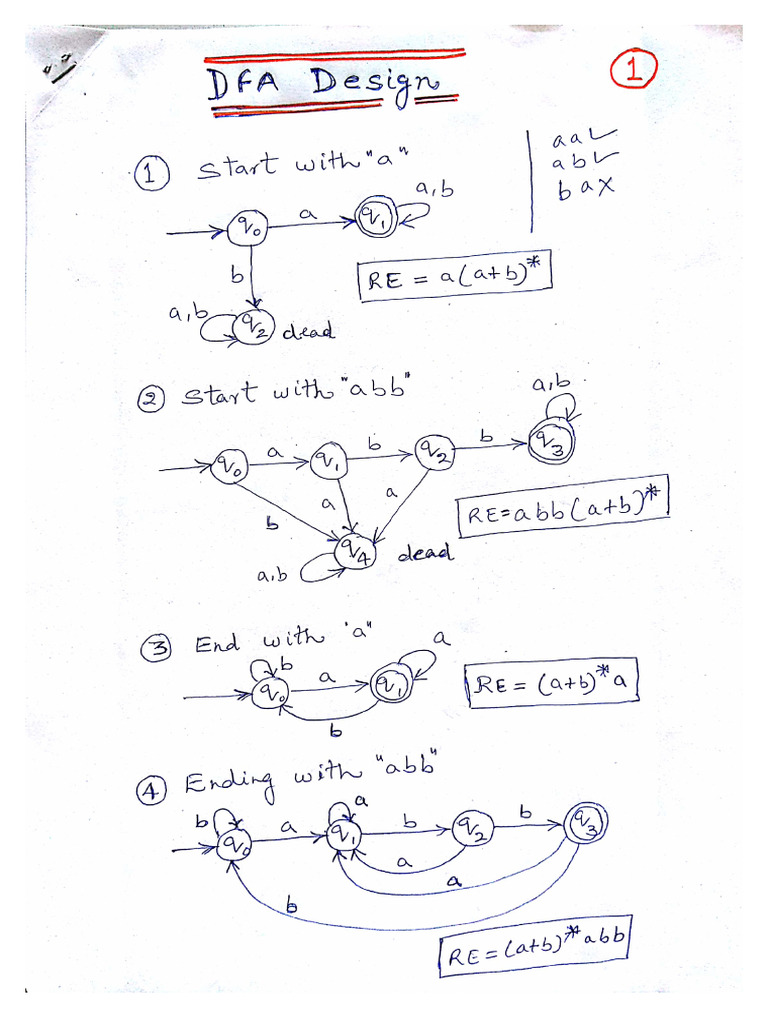 DFA Design
1
1 Start with "a"
aa ✓
ab ✓
ba x
a,b
q0 a q1
b
RE = a(a+b)*
a,b
q2 dead
2 Start with "abb"
a,b
q0 a q1 b q2 b q3
b a a
RE = abb(a+b)*
q4 dead
a,b
3 End with 'a"
a
b
q0 a q1
RE = (a+b)* a
b
4 Ending with "abb"
b a
q0 a q1 b q2 b q3
a
a
b
RE = (a+b)* abb